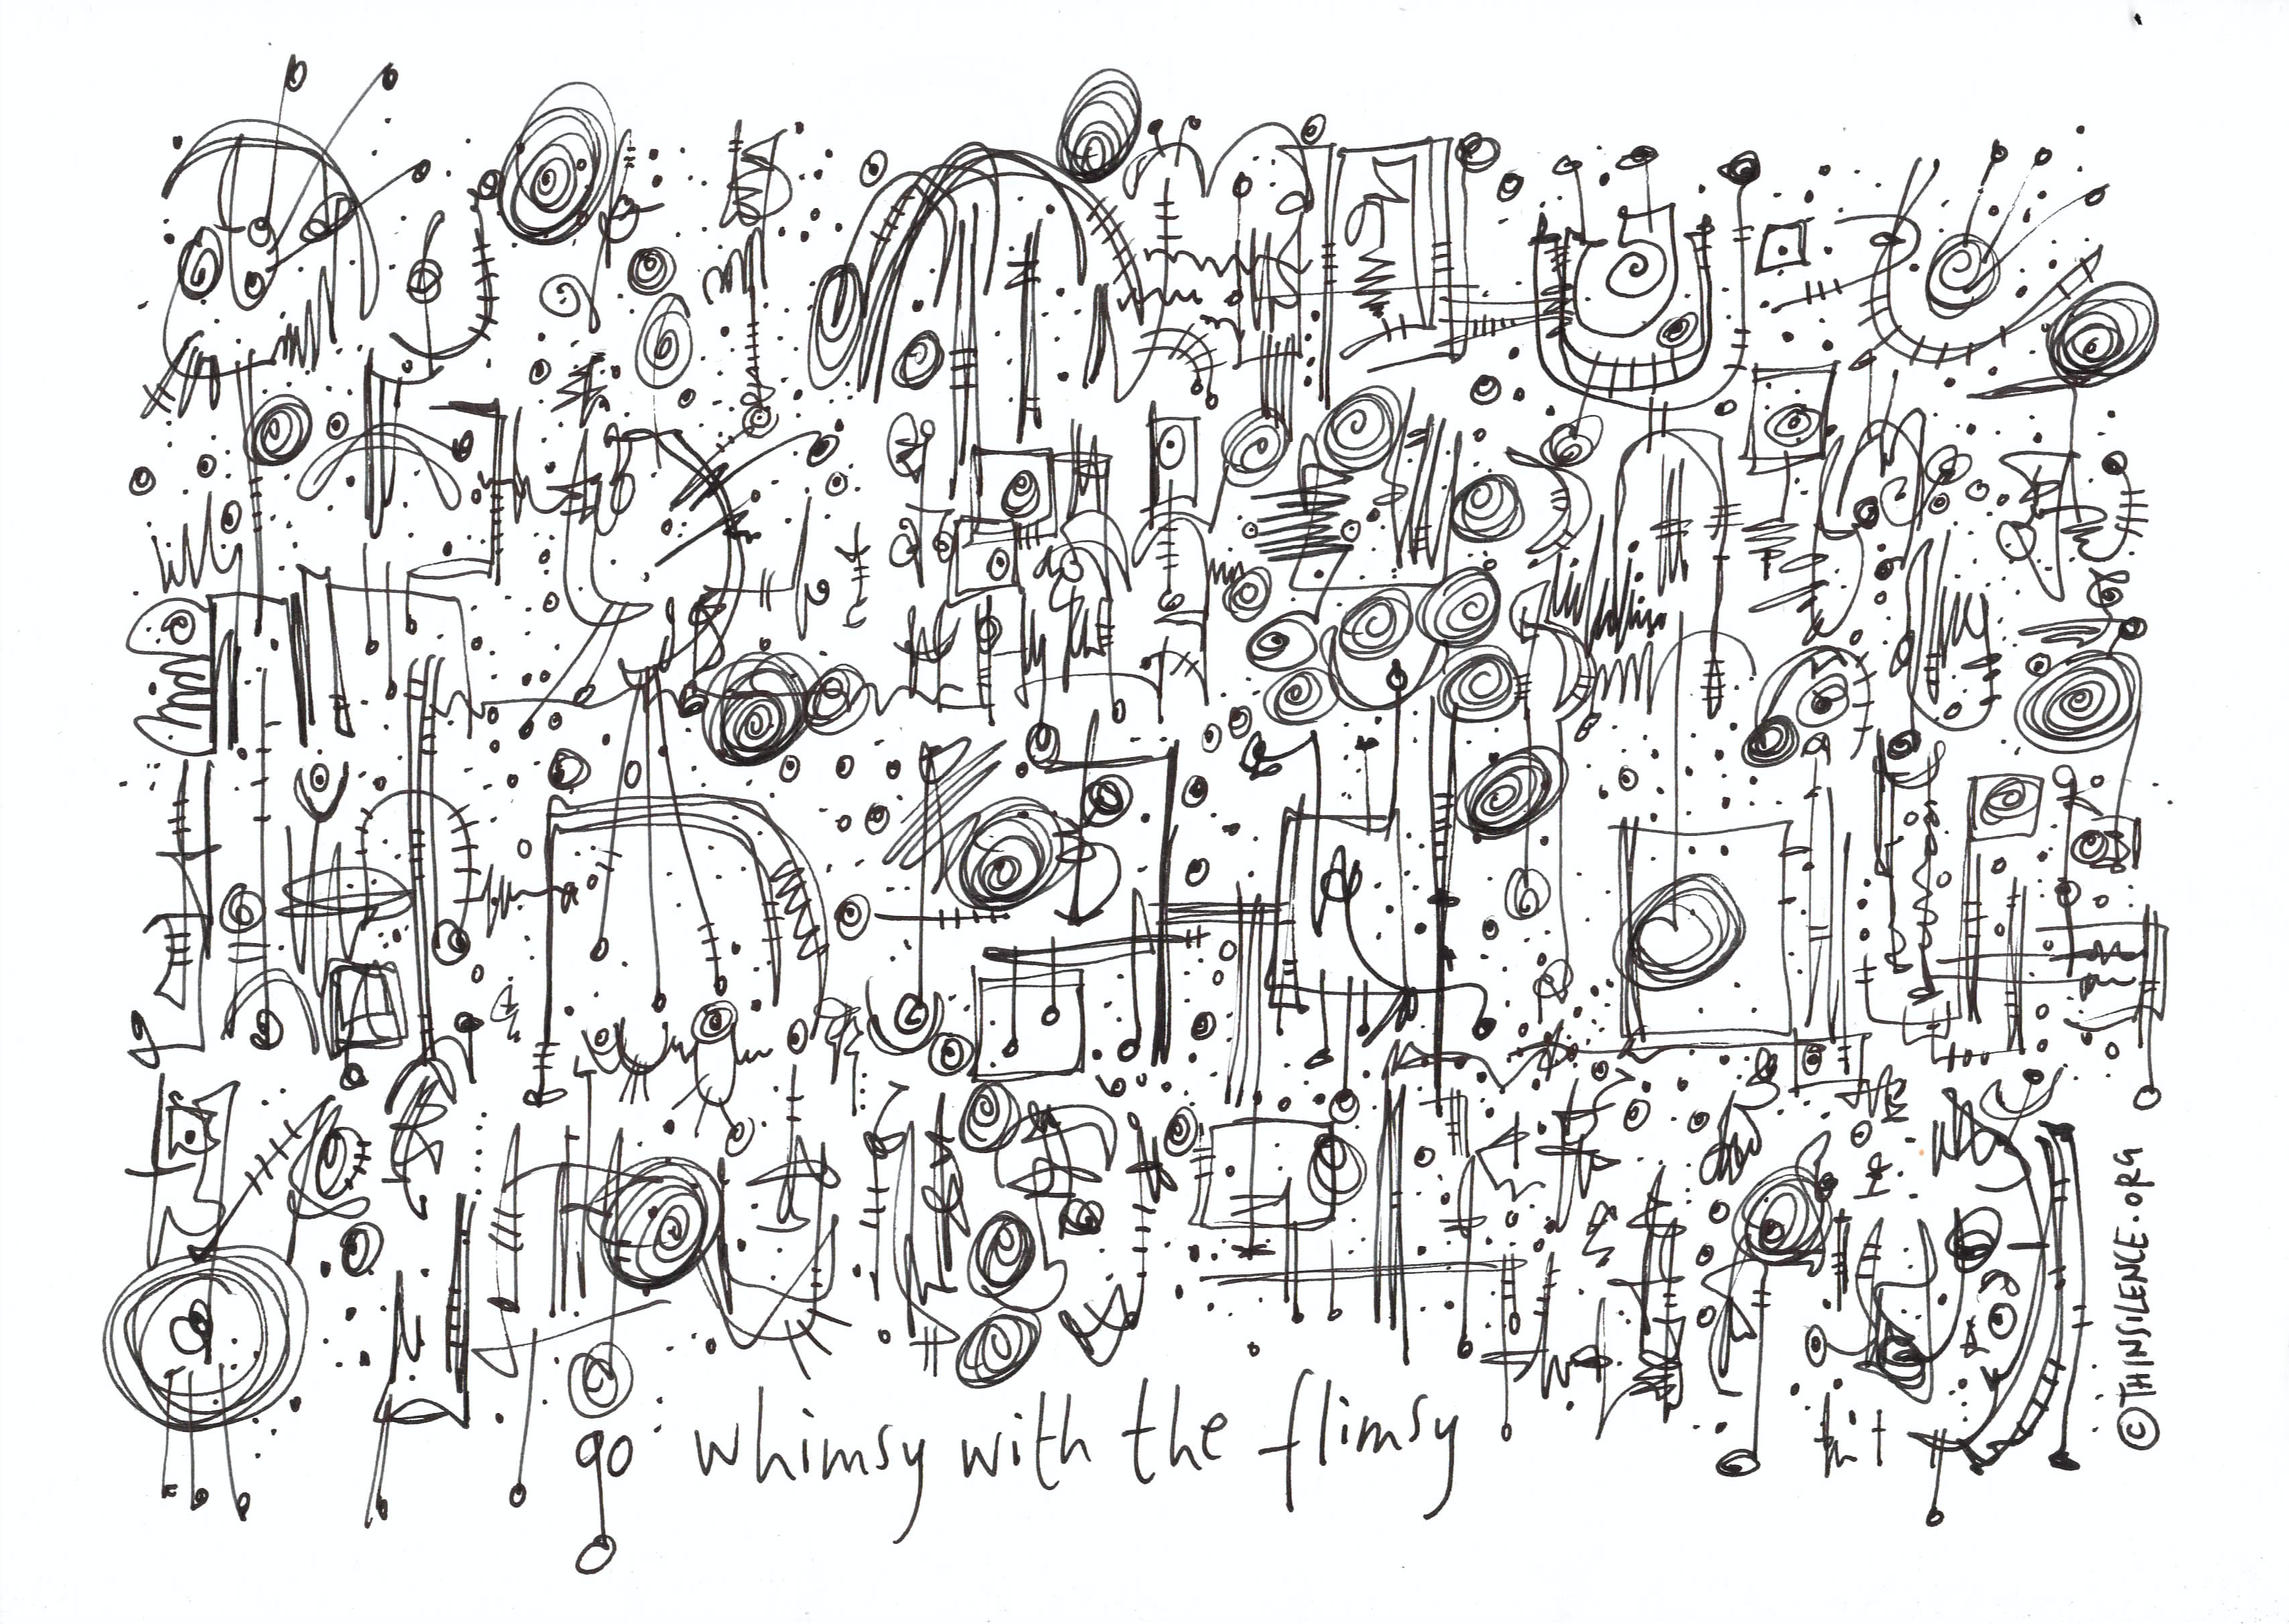 go whimsy with the flimsy
© THINSILENCE.ORG